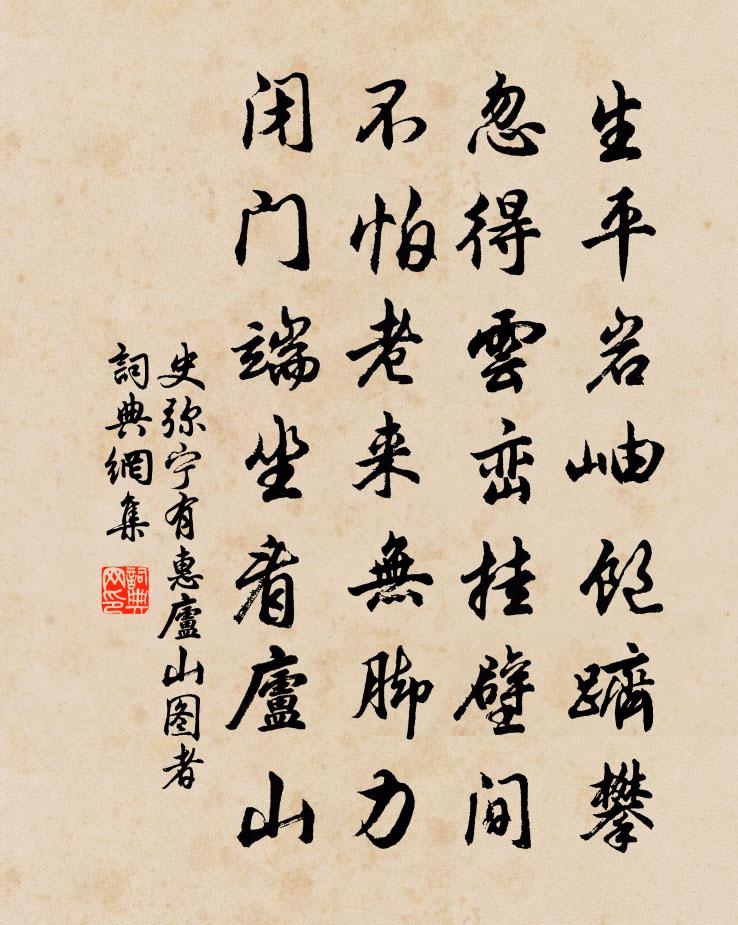 生平岩岫饱跻攀
忽得雲峦挂壁间
不怕老来無脚力
闭门端坐看廬山
史弥宁有惠廬山图者
詞典網集
詞典网印